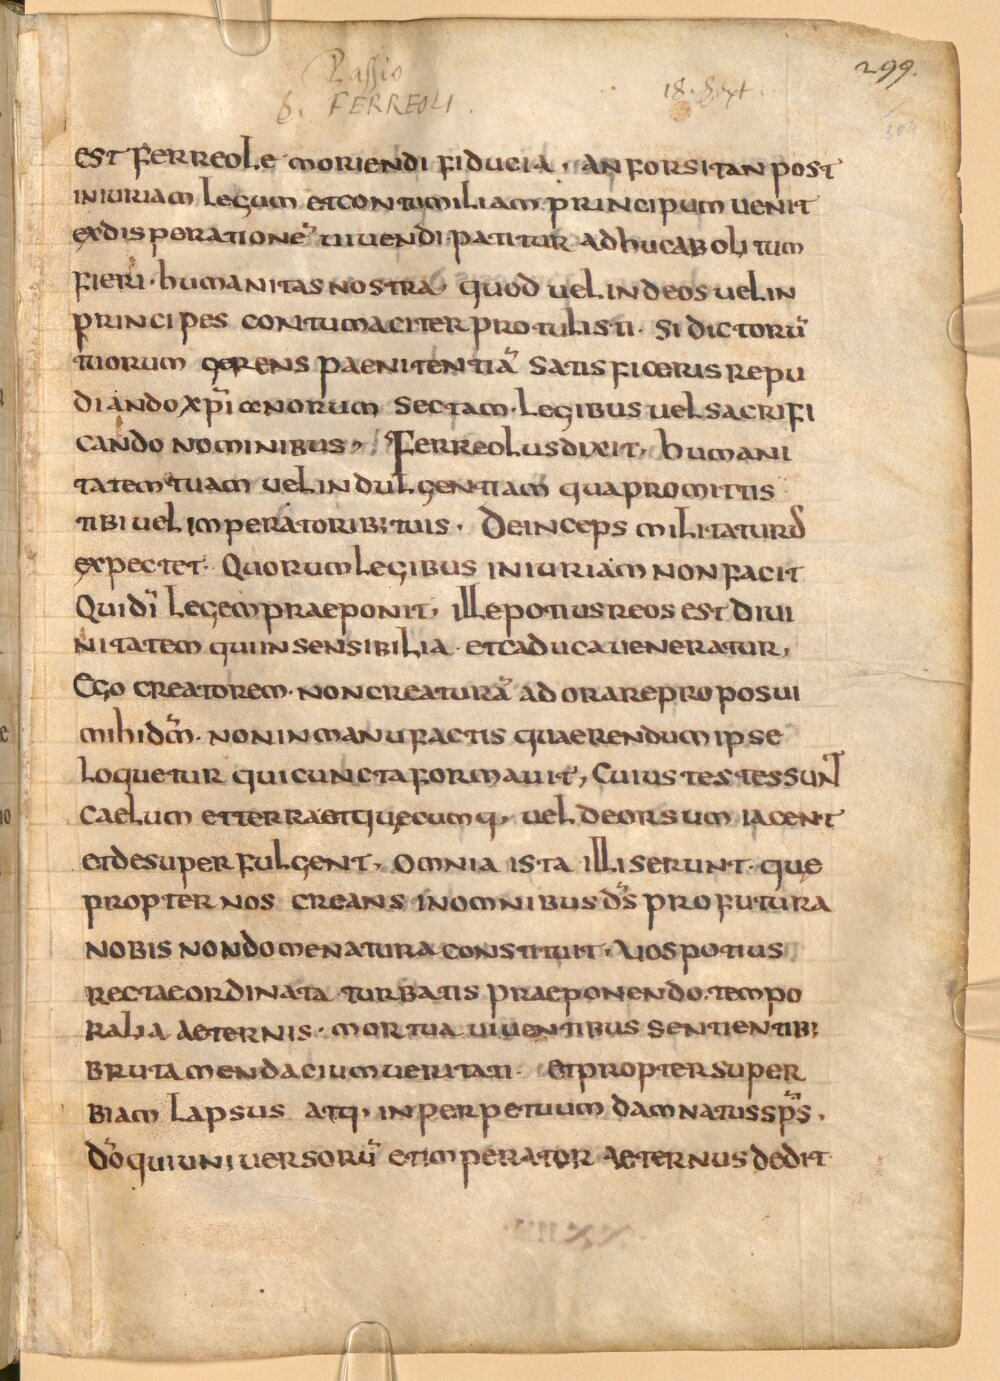 Passio
S. FERREOLI.
18. Sept.
299.
est ferreole moriendi fiducia, an forsitan post
iniuriam legum et contumiliam principum uenit
ex disperatione uiuendi. patitur adhuc abolitum
fieri. humanitas nostra. quod uel in deos uel in
principes contumaciter protulisti. Si dictorū
tuorum gerens paenitentiā satisfieceris repu
diando xp̄ianorum sectam. legibus uel sacrifi
cando nominibus, Ferreolus dixit, humani
tatem tuam uel indulgentiam qua promittis
tibi uel imperatorib; tuis. Deinceps militaturus
expectet. Quorum legibus iniuriam non facit
Qui dī legem praeponit, ille potius reos est diui
nitatem qui insensibilia et caduca ueneratur,
Ego creatorem. non creaturā adorare proposui
mihi dm̄. non in manufactis quaerendum ipse
loquetur qui cuncta formauit, Cuius testes sunt
caelum et terra et quecumq, uel deorsum iacent
et desuper fulgent, omnia ista illi serunt. que
propter nos creans in omnibus ds̄ profutura
nobis non domenatura constituit. Uos potius
rectae ordinata turbatis praeponendo. tempo
ralia aeternis. mortua uiuentibus sentientib;
bruta mendacium ueritati. Et propter super
biam lapsus atq, in perpetuum damnatus sp̄s,
dō qui uniuersorū et imperator aeternus dedit